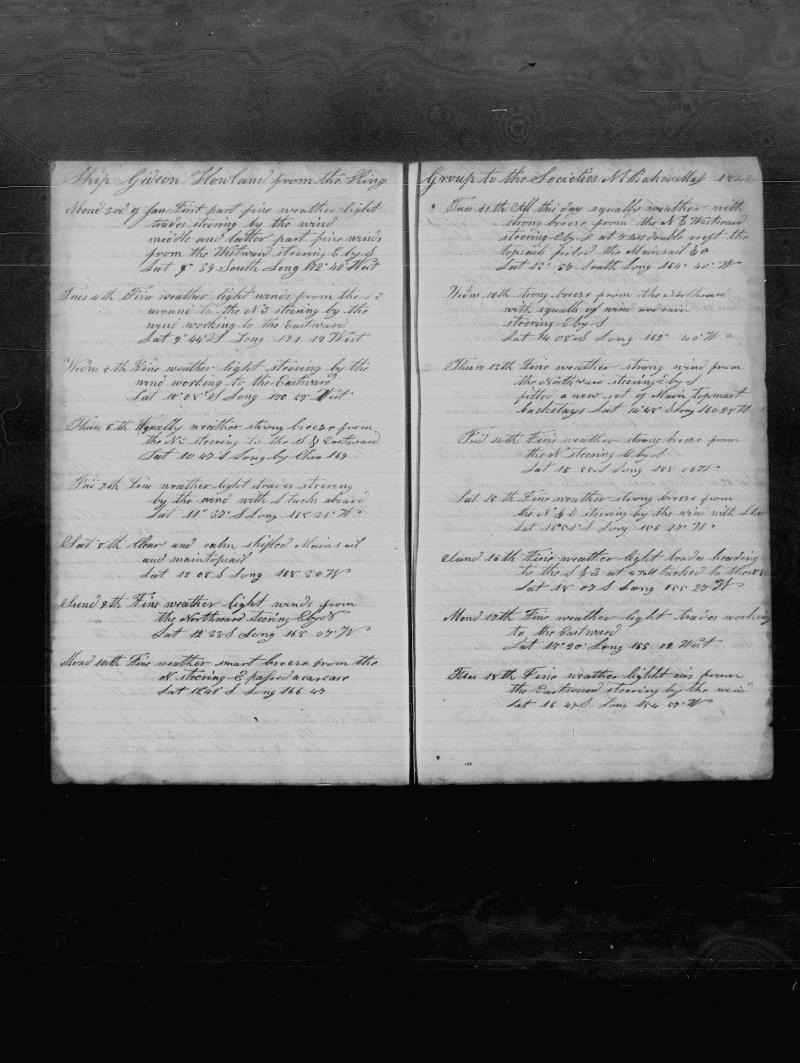 Ship Gideon Howland from the Kling
Mond 3rd of Jan First part fine weather light
trades steering by the wind
middle and latter part fine winds
from the Westward steering E by S
Lat 9° 39 South Long 172° 40' West
Tues 4th Fine weather light winds from the
around to the N E steering by the
wind working to the Eastward
Lat 9° 44' S Long 171 19 West
Wedns 5th Fine weather light steering by the
wind working to the Eastward
Lat 10° 08' S Long 170 West
Thurs 6th Squally weather strong breeze from
the NE steering to the S & Eastward
Lat 10 47 S Long by Chro 169
Fri 7th Fine weather light trades steering
by the wind with Stacks aboard
Lat 11° 37' S Long 168 W
Sat 8th Clear and calm shifted Mainsail
and maintopsail
Lat 12 08 S Long 168 30 W
Sund 9th Fine weather light winds from
the Northward steering E by S
Lat 12° 33 S Long 168 07' W
Mond 10th Fine weather smart breeze from the
N steering E passed a carcare
Lat 12 48' S Long 166 47
Group to the Societies M Baker Mas 184
Tues 11th All this day squally weather with
strong breeze from the N & Westward
steering E by S at double reeft the
topsails furled the Mainsail &c
Lat 13° 37' South Long 164° 40' W
Wedns 12th strong breeze from the Northward
with squalls of wind and rain
steering E by S
Lat 14 08' S Long 162° 40' W
Thurs 13th Fine weather strong wind from
the Northward steering E by S
fitted a new set of Main topmast
backstays Lat 14° 48' S Long 160 28 W
Frid 14th Fine weather strong breeze from
the N steering E by S
Lat 15 55 S Long 158 06 W
Sat 15th Fine weather strong breeze from
the N & E steering by the wind with
Lat 16° S Long 156 17' W
Sund 16th Fine weather light trades heading
to the S & E at 4 PM tacked to the
Lat 18 07 S Long 155 27 W
Mond 17th Fine weather light trades working
to the Eastward
Lat 17° 20' Long 155 02 West
Tues 18th Fine weather light airs from
the Eastward steering by the wind
Lat 16 47 S Long 154 W